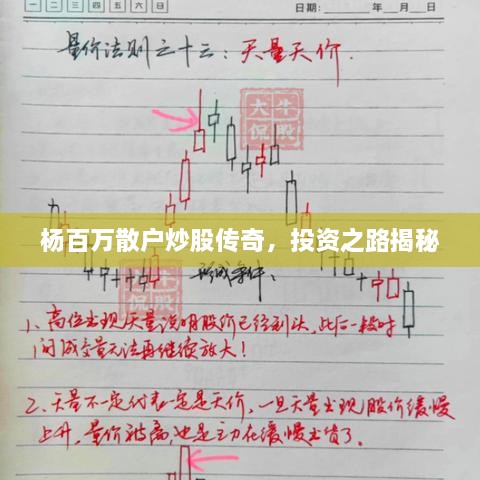 一 二 三 四 五 六 日
日期： 年 月 日
量价法则之十三：天量天价.
大牛
侃股
杨百万散户炒股传奇，投资之路揭秘
形成条件：
1、高位出现天量说明股价已经到头,此后一段时
间成交量无法再继续放大！
2、天量不一定代表一定是天价，一旦天量出现股价缓慢
上升，量价背离也是主力在缓慢出货了。